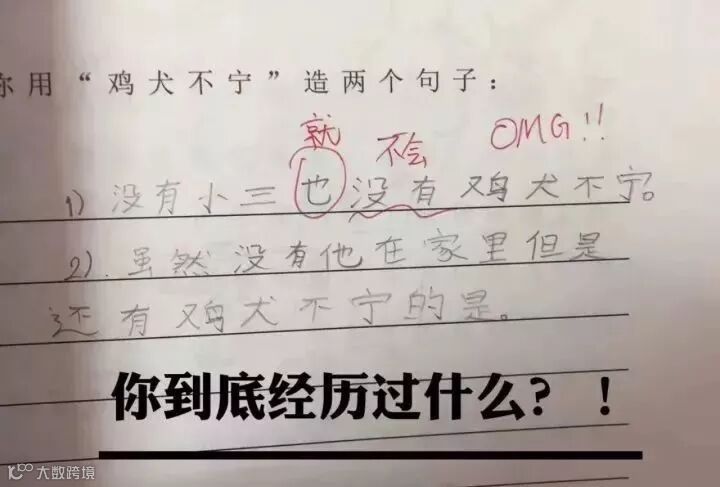 你用“鸡犬不宁”造两个句子：
就 不会 OMG!!
1) 没有小三也没有鸡犬不宁。
2). 虽然没有他在家里但是
还有鸡犬不宁的是。
你到底经历过什么？！
大数跨境